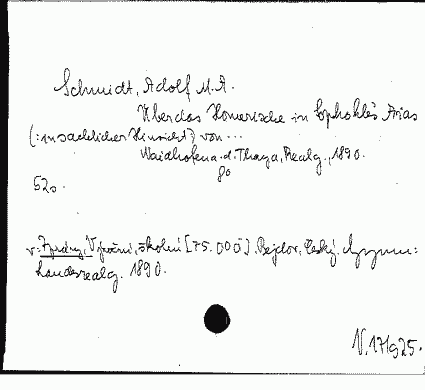 Schmidt, Adolf M. A.
Über das Homerische in Sophokles Aias
(: in sachlicher Hinsicht) von ...
Waidhofen a. d. Thaya, Realg., 1890.
8o
52 s.
v: Zprávy, Výroční, školní [75.000]. Bejdov, Český. Gymn:
Landesrealg. 1890.
V. 17/925.